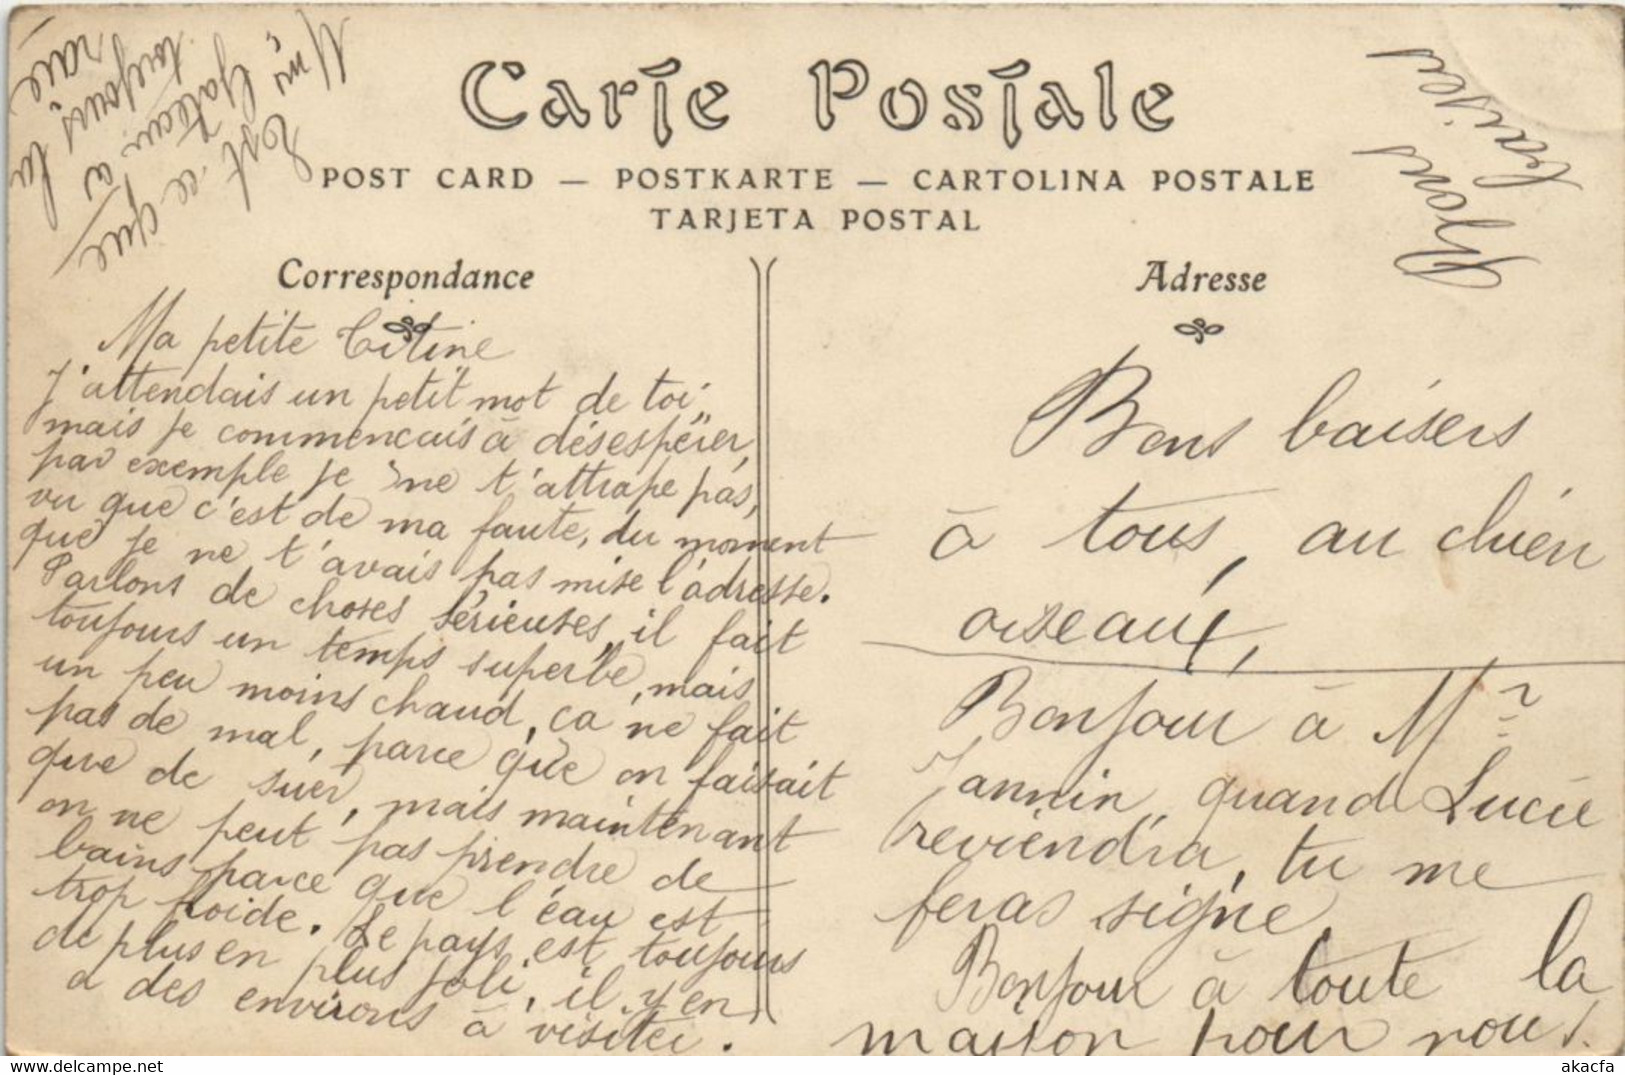 Carte Postale
POST CARD — POSTKARTE — CARTOLINA POSTALE
TARJETA POSTAL
Correspondance
Adresse
Est-ce que
Mme Gateau a
toujours la
rate
Bons
baisers
Ma petite Titine
J'attendais un petit mot de toi,
mais je commencais à désespérer,
par exemple je ne t'attrape pas,
vu que c'est de ma faute, du moment
que je ne t'avais pas mise l'adresse.
Parlons de choses sérieuses, il fait
toujours un temps superbe, mais
un peu moins chaud, ca ne fait
pas de mal, parce que on faisait
que de suer, mais maintenant
on ne peut pas prendre de
bains parce que l'eau est
trop froide. Le pays est toujours
de plus en plus joli, il y en
a des environs à visiter.
Bons baisers
à tous, au chien
oiseaux,
Bonjour à Mr
Jannin, quand Lucie
reviendra, tu me
feras signe
Bonjour à toute la
maison pour nous.
akacfa